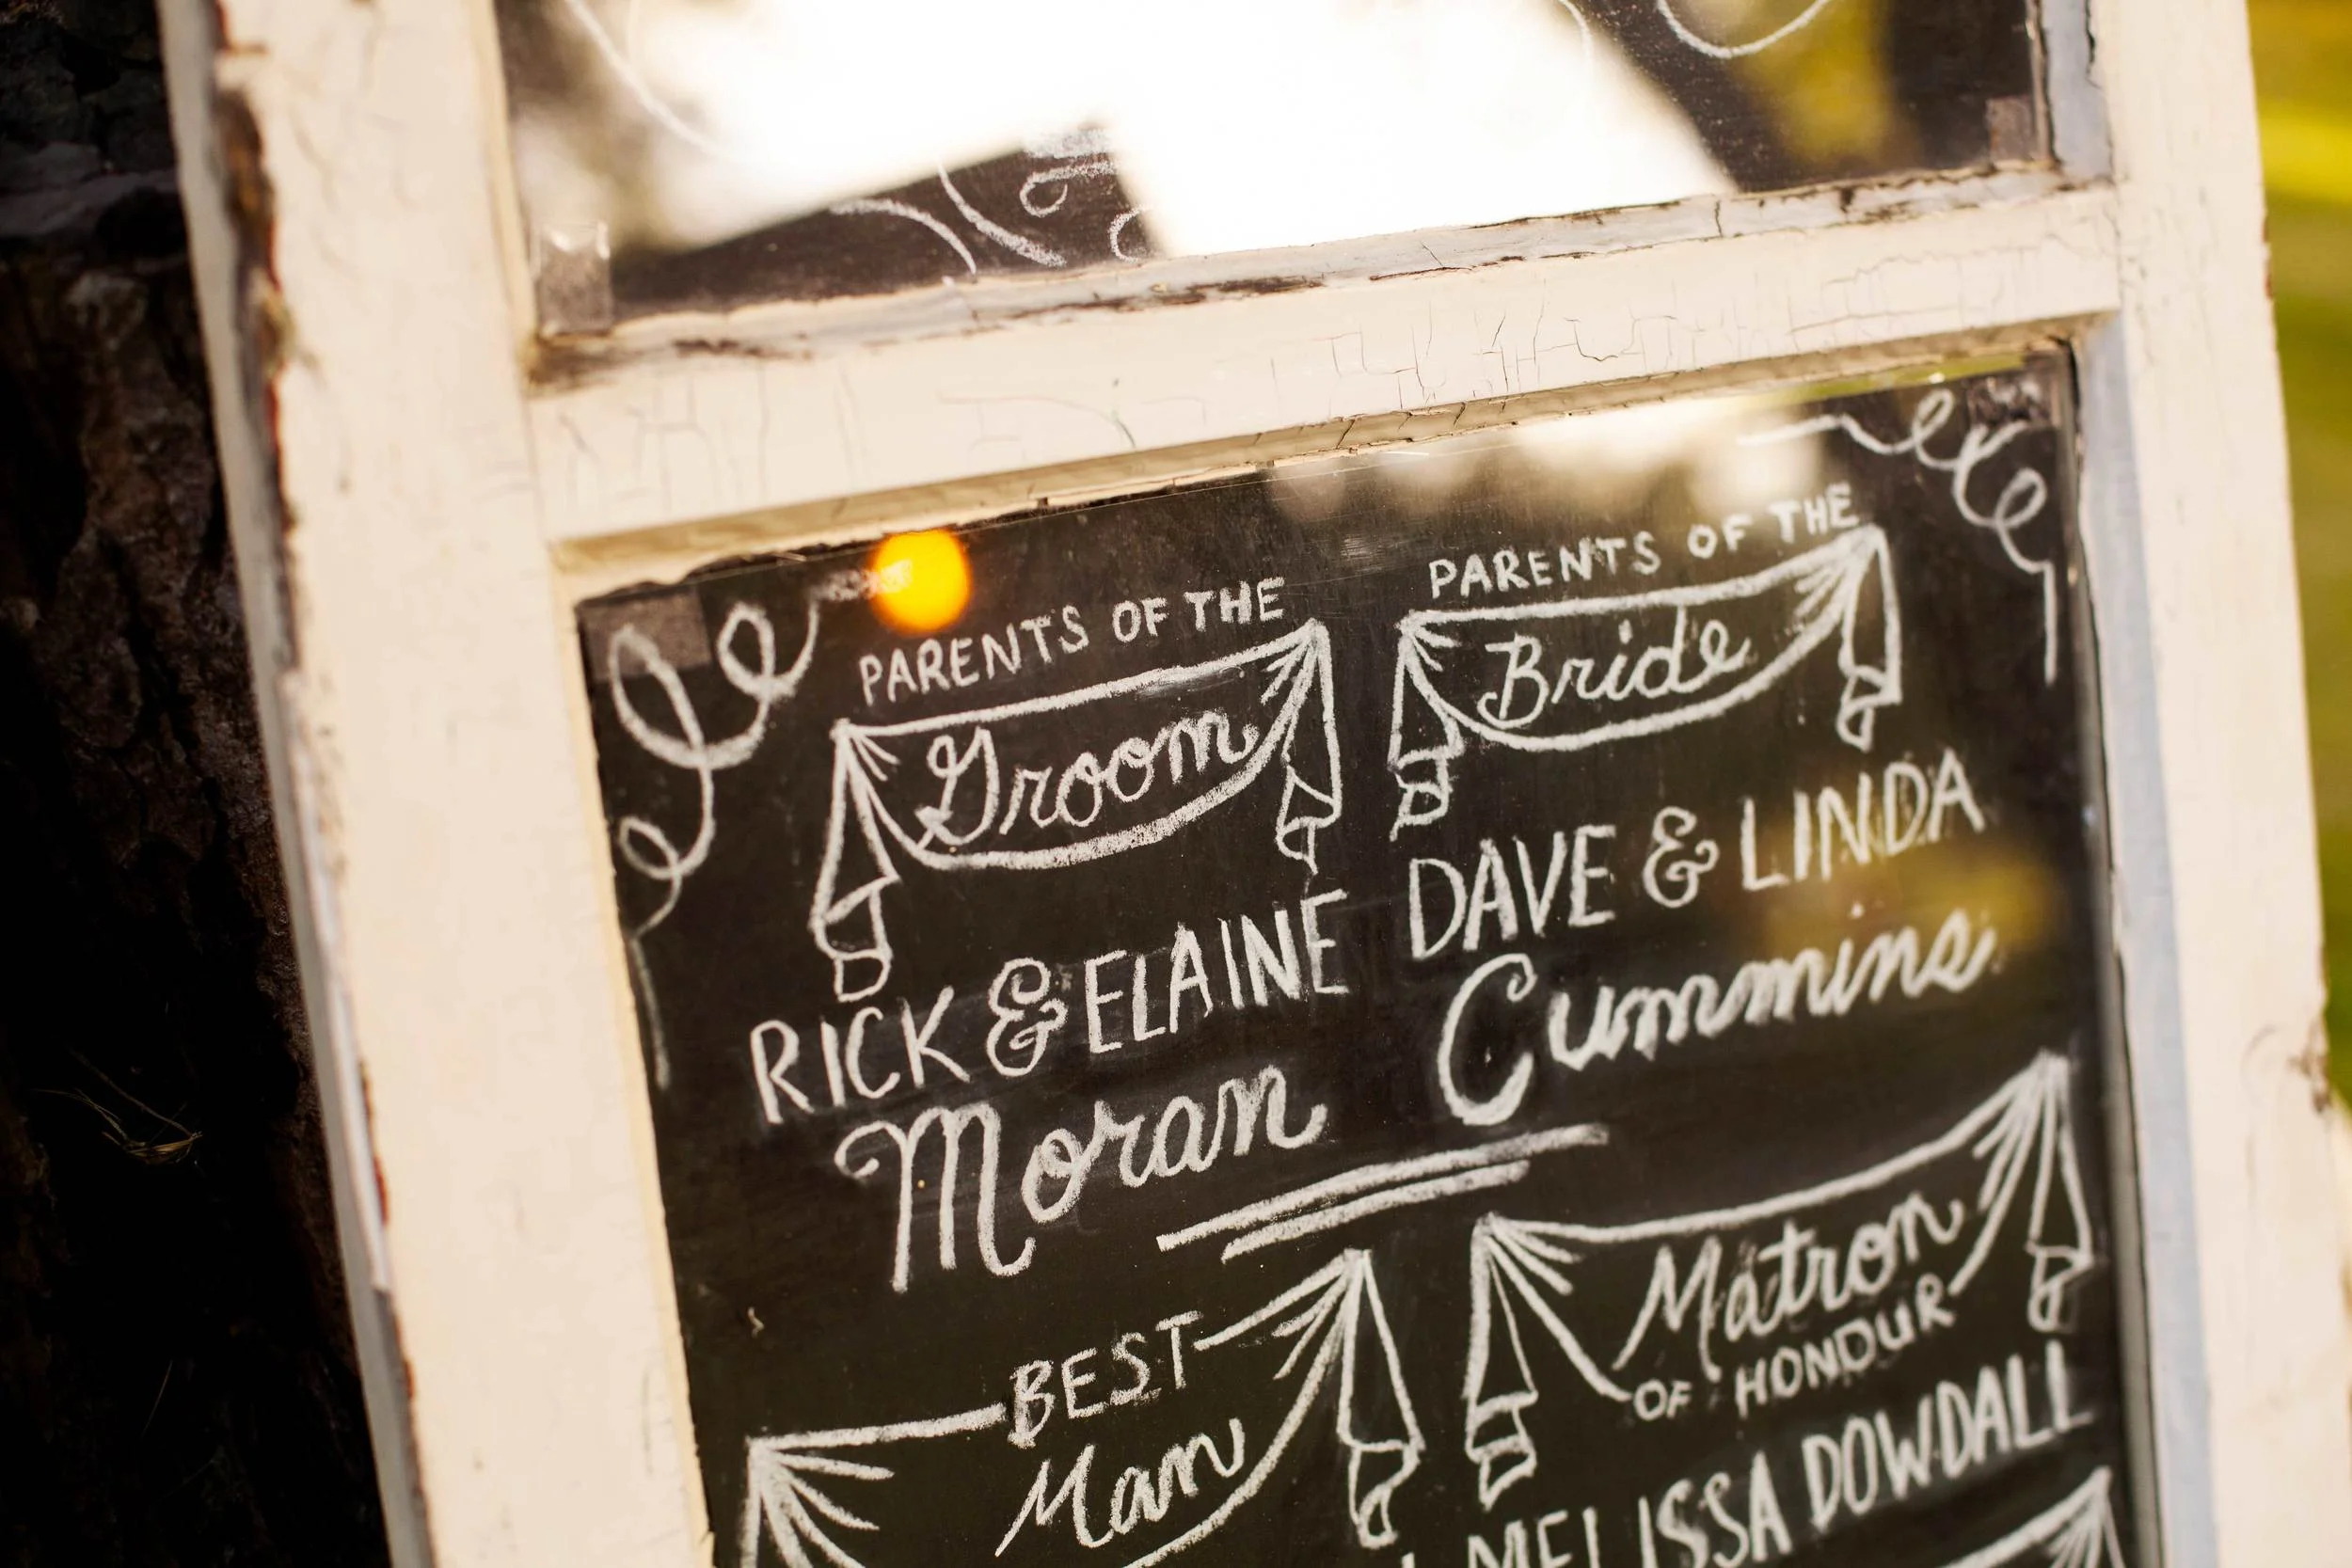 PARENTS OF THE
Groom
RICK & ELAINE
Moran
PARENTS OF THE
Bride
DAVE & LINDA
Cummins
BEST
Man
Matron
OF HONOUR
MELISSA DOWDALL